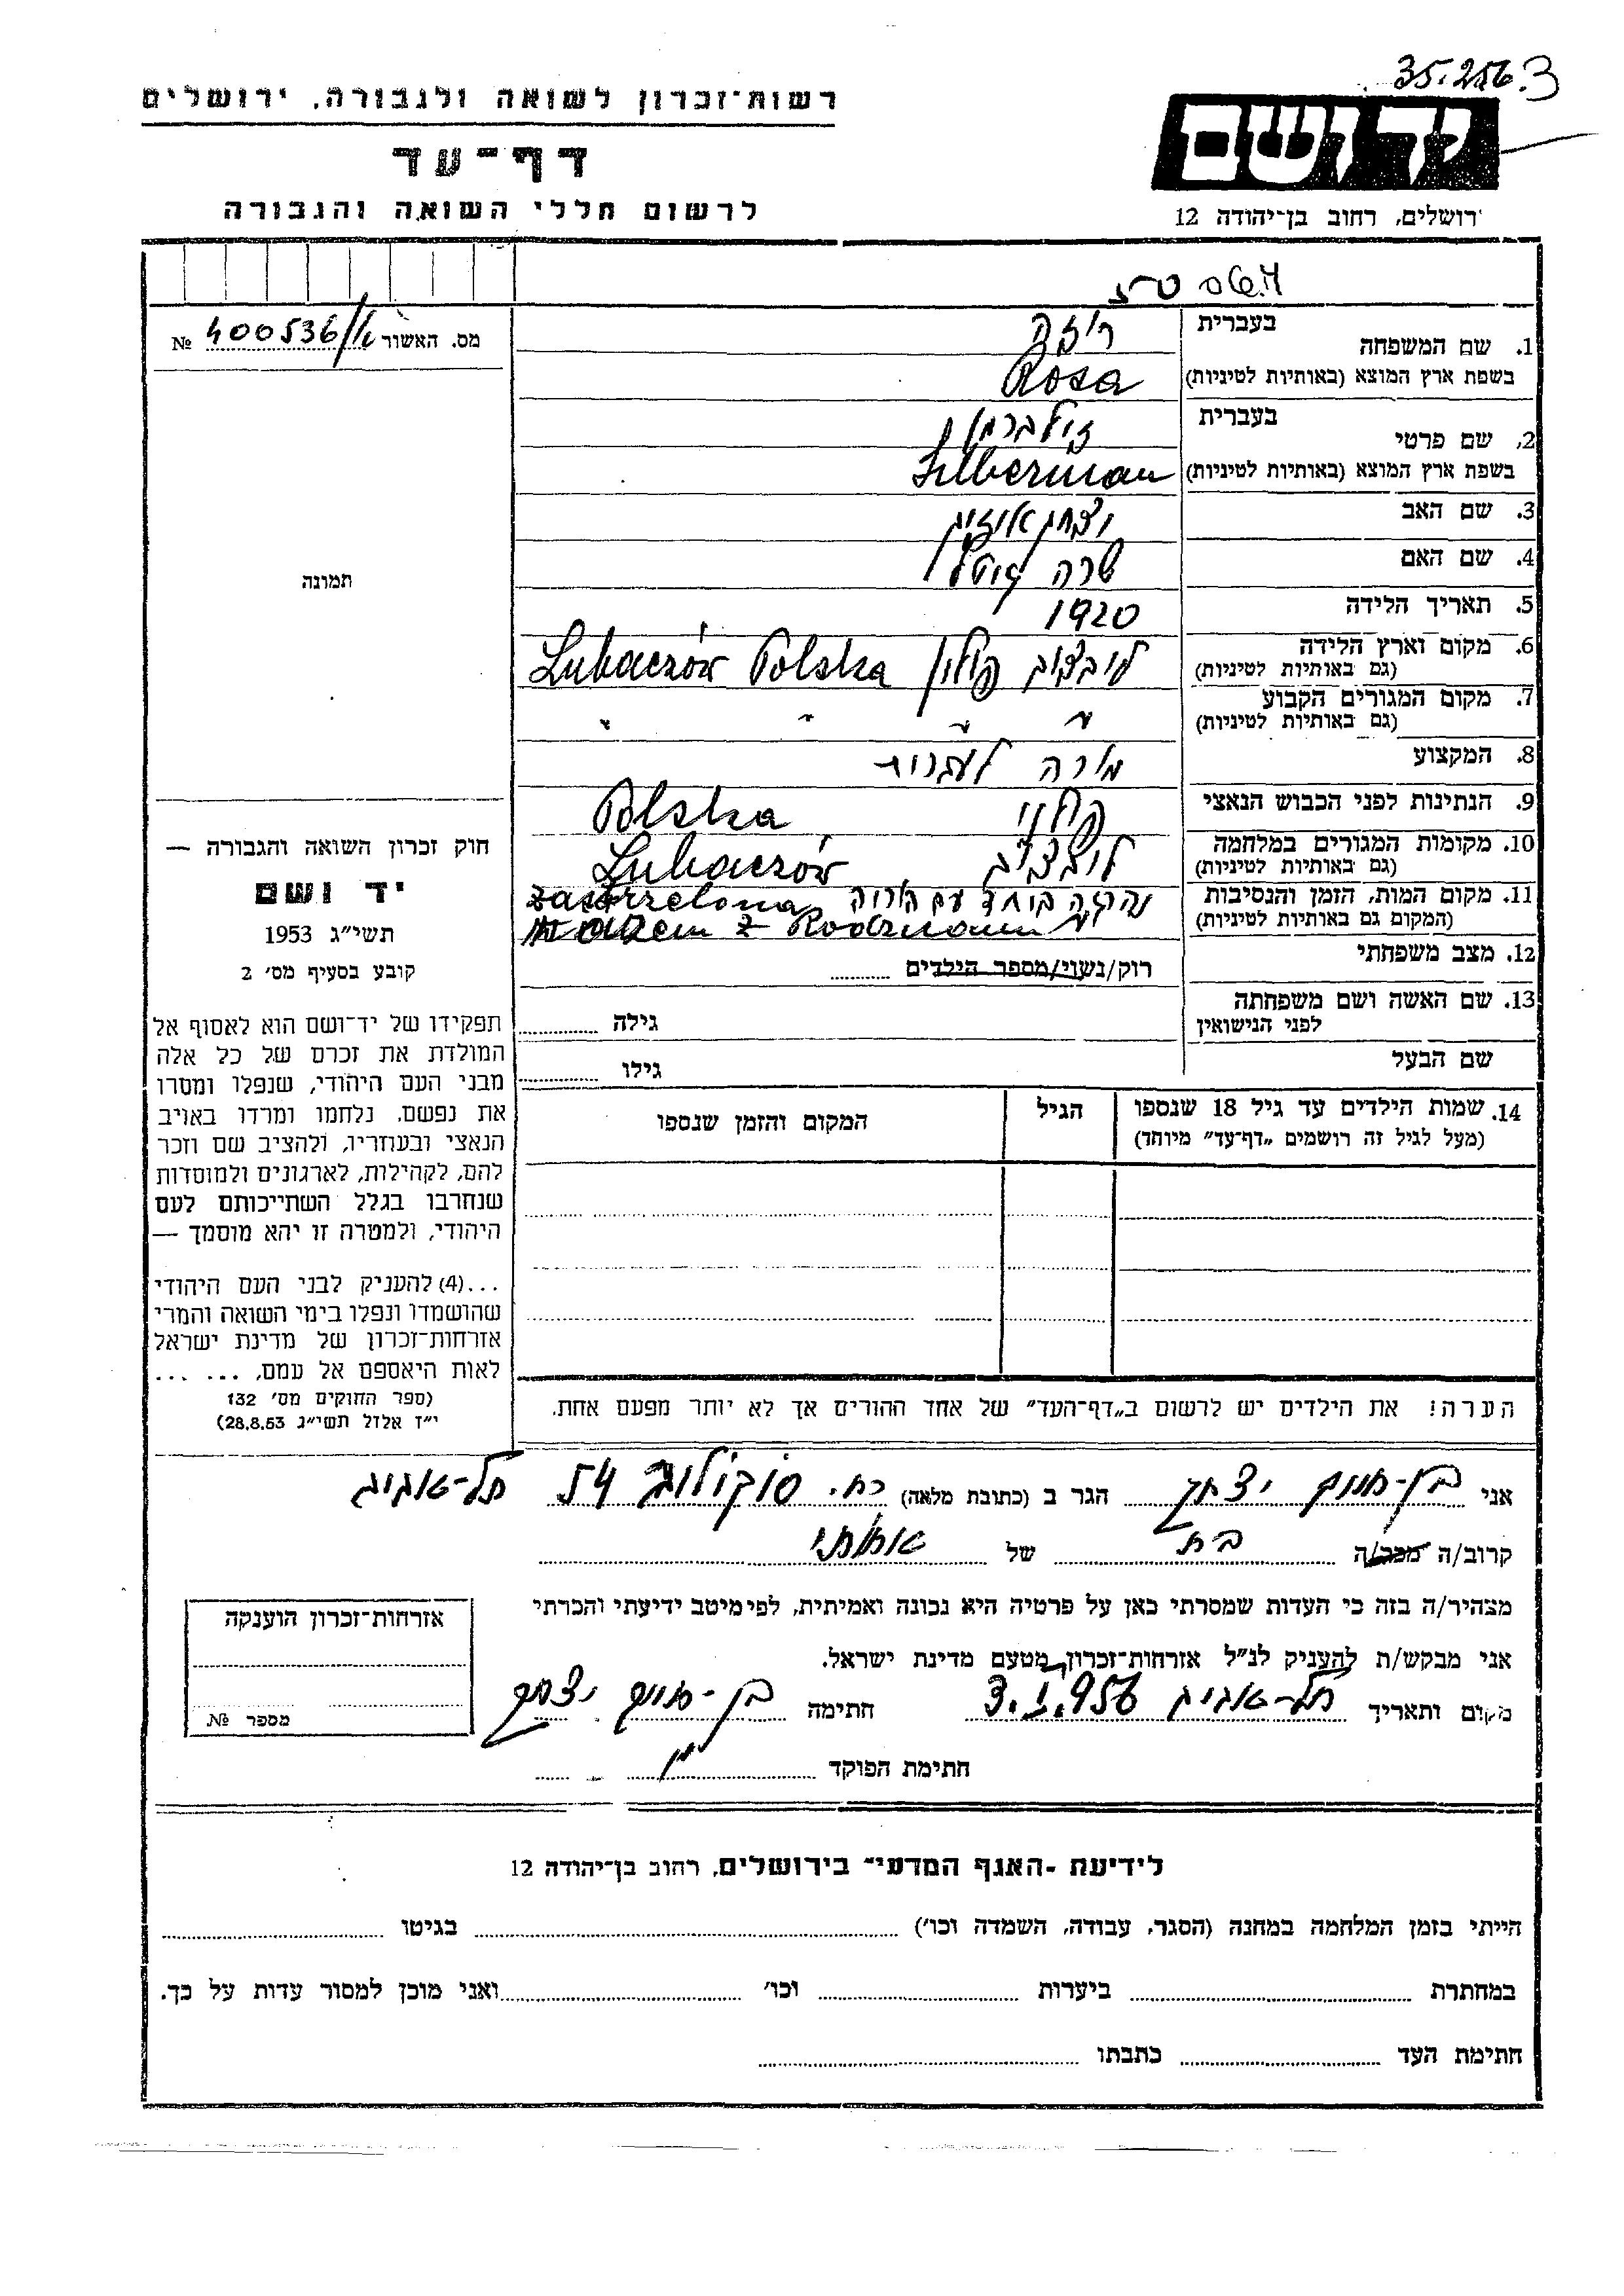 35.256.3
רשות־זכרון לשואה ולגבורה, ירושלים
דף־עד
לרשום חללי השואה והגבורה
ידושם
ירושלים, רחוב בן־יהודה 12
מס. האשור 400536/ №
בעברית
1. שם המשפחה רוזה
בשפת ארץ המוצא (באותיות לטיניות) Rosa
בעברית
2. שם פרטי זילברמן
בשפת ארץ המוצא (באותיות לטיניות) Silberman
3. שם האב
4. שם האם שרה
5. תאריך הלידה 1920
6. מקום וארץ הלידה לובצוב פולין Lubaczów Polska
(גם באותיות לטיניות)
7. מקום המגורים הקבוע " " " "
(גם באותיות לטיניות)
8. המקצוע מורה לעברית
9. הנתינות לפני הכבוש הנאצי פולני Polska
10. מקומות המגורים במלחמה לובצוב Lubaczów
(גם באותיות לטיניות)
11. מקום המות, הזמן והנסיבות נהרגה ביחד עם הוריה zastrzelona
(המקום גם באותיות לטיניות) razem z Rodzicami
12. מצב משפחתי רוק/נשוי/מספר הילדים
13. שם האשה ושם משפחתה גילה
לפני הנישואין
שם הבעל גילו
14. שמות הילדים עד גיל 18 שנספו הגיל המקום והזמן שנספו
(מעל לגיל זה רושמים „דף־עד” מיוחד)
הערה! את הילדים יש לרשום ב„דף־העד” של אחד ההורים אך לא יותר מפעם אחת.
תמונה
חוק זכרון השואה והגבורה —
יד ושם
תשי״ג 1953
קובע בסעיף מס׳ 2
תפקידו של יד־ושם הוא לאסוף אל
המולדת את זכרם של כל אלה
מבני העם היהודי, שנפלו ומסרו
את נפשם, נלחמו ומרדו באויב
הנאצי ובעוזריו, ולהציב שם וזכר
להם, לקהילות, לארגונים ולמוסדות
שנחרבו בגלל השתייכותם לעם
היהודי, ולמטרה זו יהא מוסמך —
...(4) להעניק לבני העם היהודי
שהושמדו ונפלו בימי השואה והמרי
אזרחות־זכרון של מדינת ישראל
לאות היאספם אל עמם, ... ...
(ספר החוקים מס׳ 132
י״ז אלול תשי״ג 28.8.53)
אני בן-חנוך יצחק הגר ב (כתובת מלאה) רח. סוקולוב 54 תל-אביב
קרוב/ה מכר/ה בת של אחותי
מצהיר/ה בזה כי העדות שמסרתי כאן על פרטיה היא נכונה ואמיתית, לפי מיטב ידיעתי והכרתי
אני מבקש/ת להעניק לנ״ל אזרחות־זכרון מטעם מדינת ישראל.
מקום ותאריך תל-אביב 3.I.956 חתימה בן-חנוך יצחק
חתימת הפוקד
אזרחות־זכרון הוענקה
מספר №
לידיעת -האגף המדעי״ בירושלים, רחוב בן־יהודה 12
הייתי בזמן המלחמה במחנה (הסגר, עבודה, השמדה וכו׳) בגיטו
במחתרת ביערות וכו׳ ואני מוכן למסור עדות על כך.
חתימת העד כתבתו